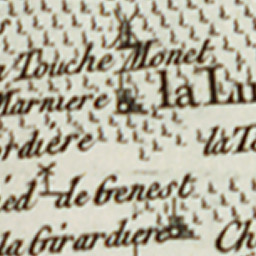 Touche Monet
Marniere
la Lu
ordiére
la T
ied de Genest
la Girardiere
Ch